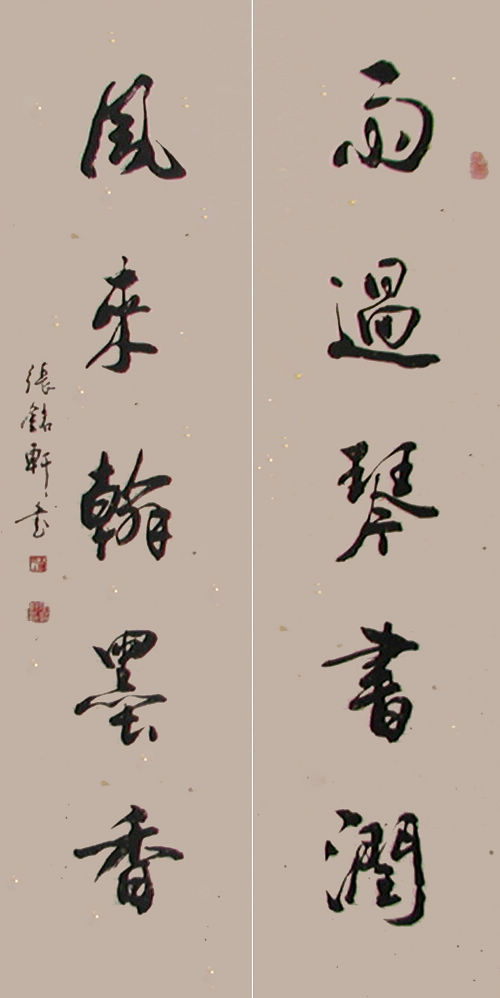 雨過琴書潤
風來翰墨香
張銘軒書